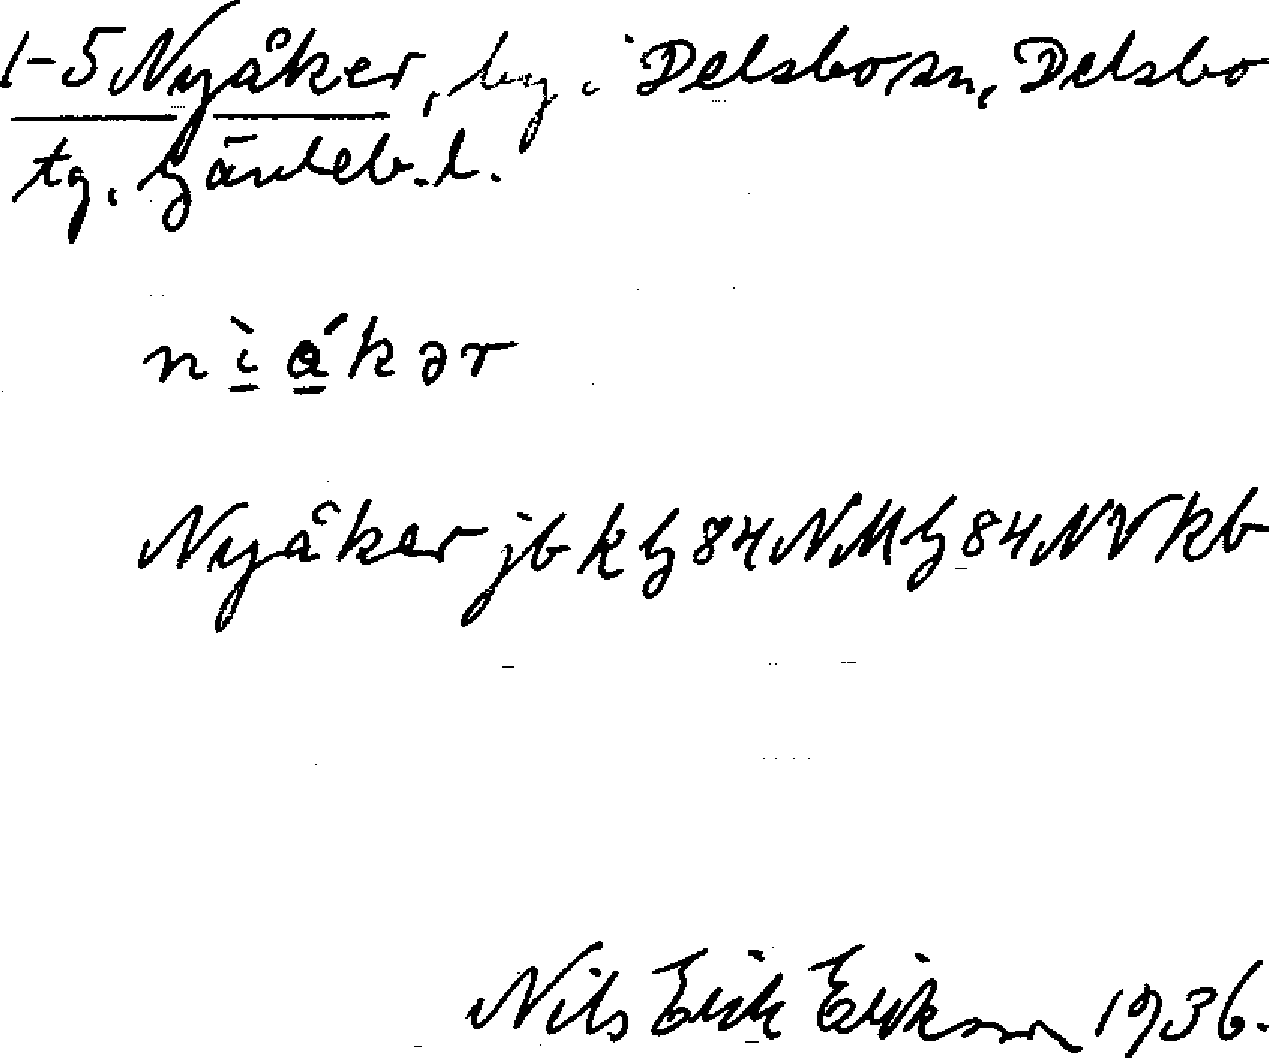 1-5 Nyåker, by i Delsbo sn, Delsbo
tg. Gävleb. l.
nìákər
Nyåker jb k G 84 NM G 84 NV kb
Nils Erik Erikson 1936.